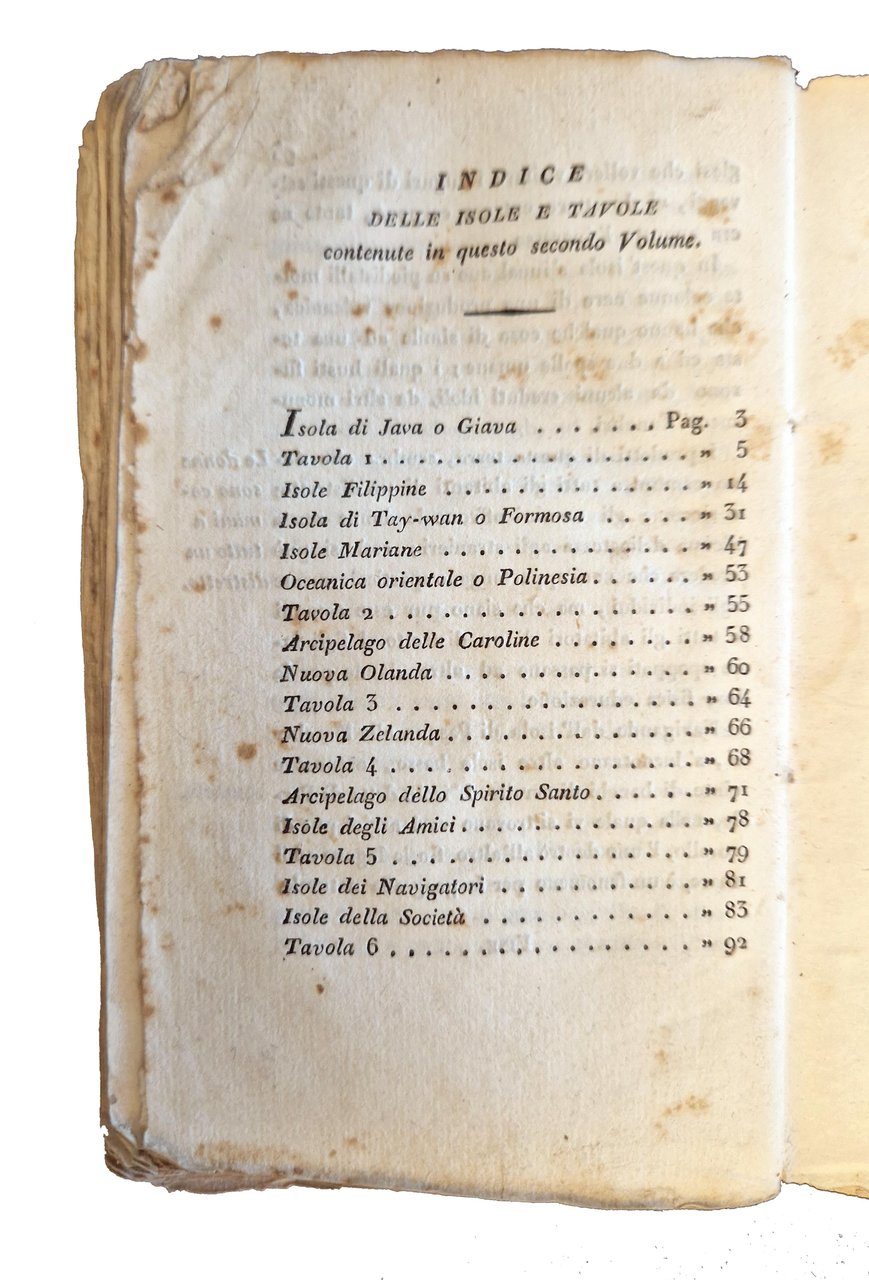 INDICE
DELLE ISOLE E TAVOLE
contenute in questo secondo Volume.
Isola di Java o Giava . . . . . . . Pag. 3
Tavola 1 . . . . . . . . . . . . . . . . . „ 5
Isole Filippine . . . . . . . . . . . . . „ 14
Isola di Tay-wan o Formosa . . . . . „ 31
Isole Mariane . . . . . . . . . . . . . „ 47
Oceanica orientale o Polinesia . . . . . . „ 53
Tavola 2 . . . . . . . . . . . . . . . . „ 55
Arcipelago delle Caroline . . . . . . . . „ 58
Nuova Olanda . . . . . . . . . . . . . „ 60
Tavola 3 . . . . . . . . . . . . . . . . „ 64
Nuova Zelanda . . . . . . . . . . . . . „ 66
Tavola 4 . . . . . . . . . . . . . . . . „ 68
Arcipelago dello Spirito Santo . . . . . . „ 71
Isole degli Amici . . . . . . . . . . . . „ 78
Tavola 5 . . . . . . . . . . . . . . . . „ 79
Isole dei Navigatori . . . . . . . . . . . „ 81
Isole della Società . . . . . . . . . . . „ 83
Tavola 6 . . . . . . . . . . . . . . . . „ 92